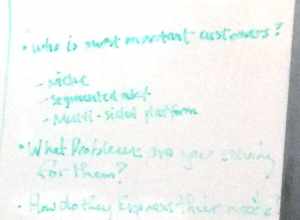 • who is most important customers?
- niche
- segmented mkt
- Multi-sided platform
• What Problems are you solving
for them?
• How do they Express their needs